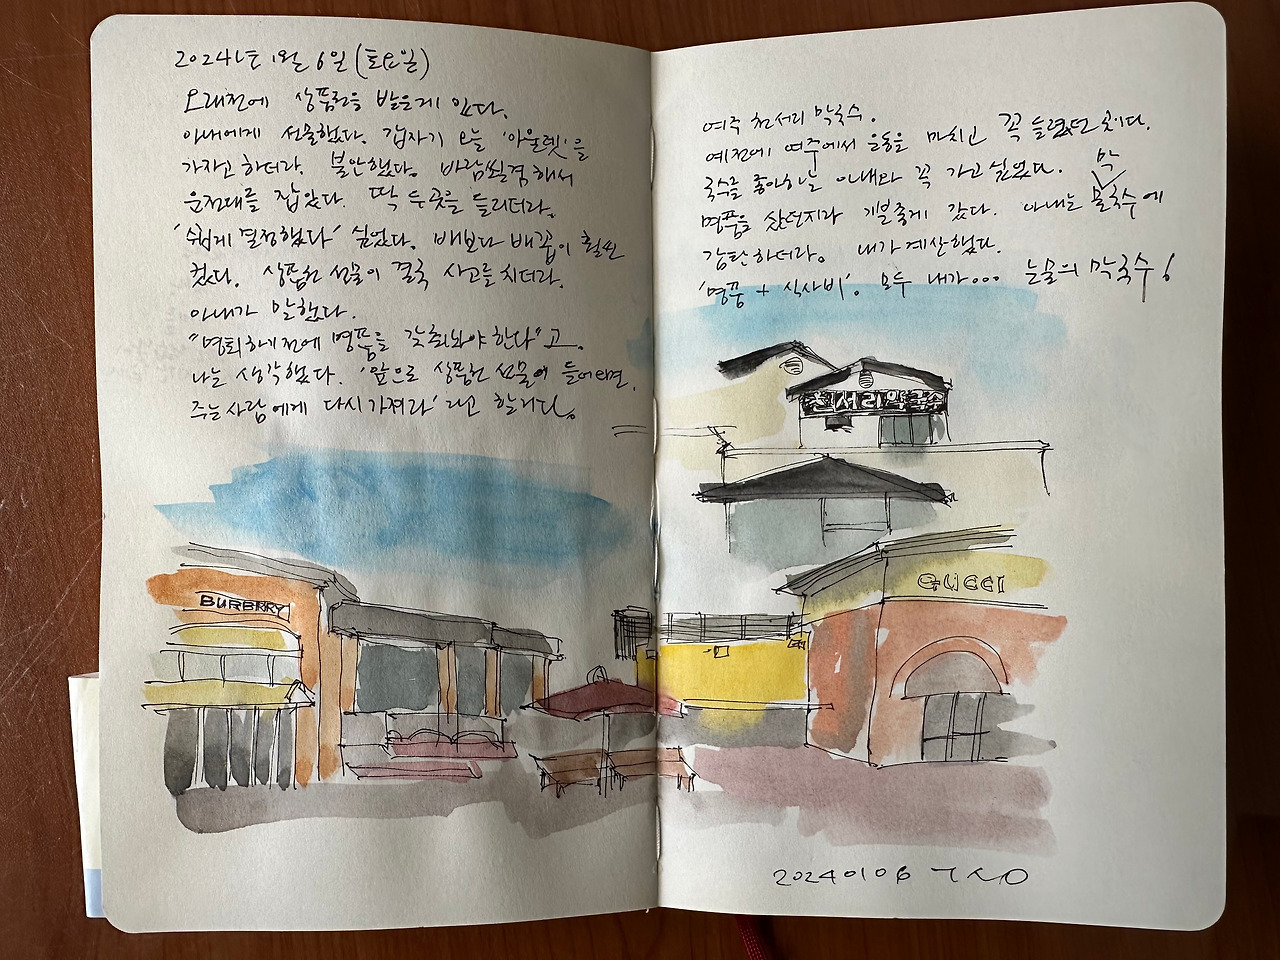 2024년 1월 6일 (토요일)
오래전에 상품권을 받은게 있다.
아내에게 선물했다. 갑자기 오늘 '아울렛'을
가자고 하더라. 불안했다. 바람쐴겸 해서
운전대를 잡았다. 딱 두곳을 들리더라.
'쉽게 결정했다' 싶었다. 배보다 배꼽이 훨씬
컸다. 상품권 선물이 결국 사고를 치더라.
아내가 말했다.
"명퇴하기전에 명품을 갖춰놔야 한다"고.
나는 생각했다. '앞으로 상품권 선물이 들어오면,
주는사람에게 다시 가져라' 라고 할거다.
여주 천서리 막국수.
예전에 여주에서 운동을 마치고 꼭 들렸던 곳이다.
국수를 좋아하는 아내와 꼭 가고 싶었다.
막
명품을 샀던지라 기분좋게 갔다. 아내는 물국수에
감탄하더라. 내가 계산했다.
'명품 + 식사비'. 모두 내가... 눈물의 막국수!
천서리막국수
BURBRRY
GUCCI
20240106 ㄱㅅㅇ